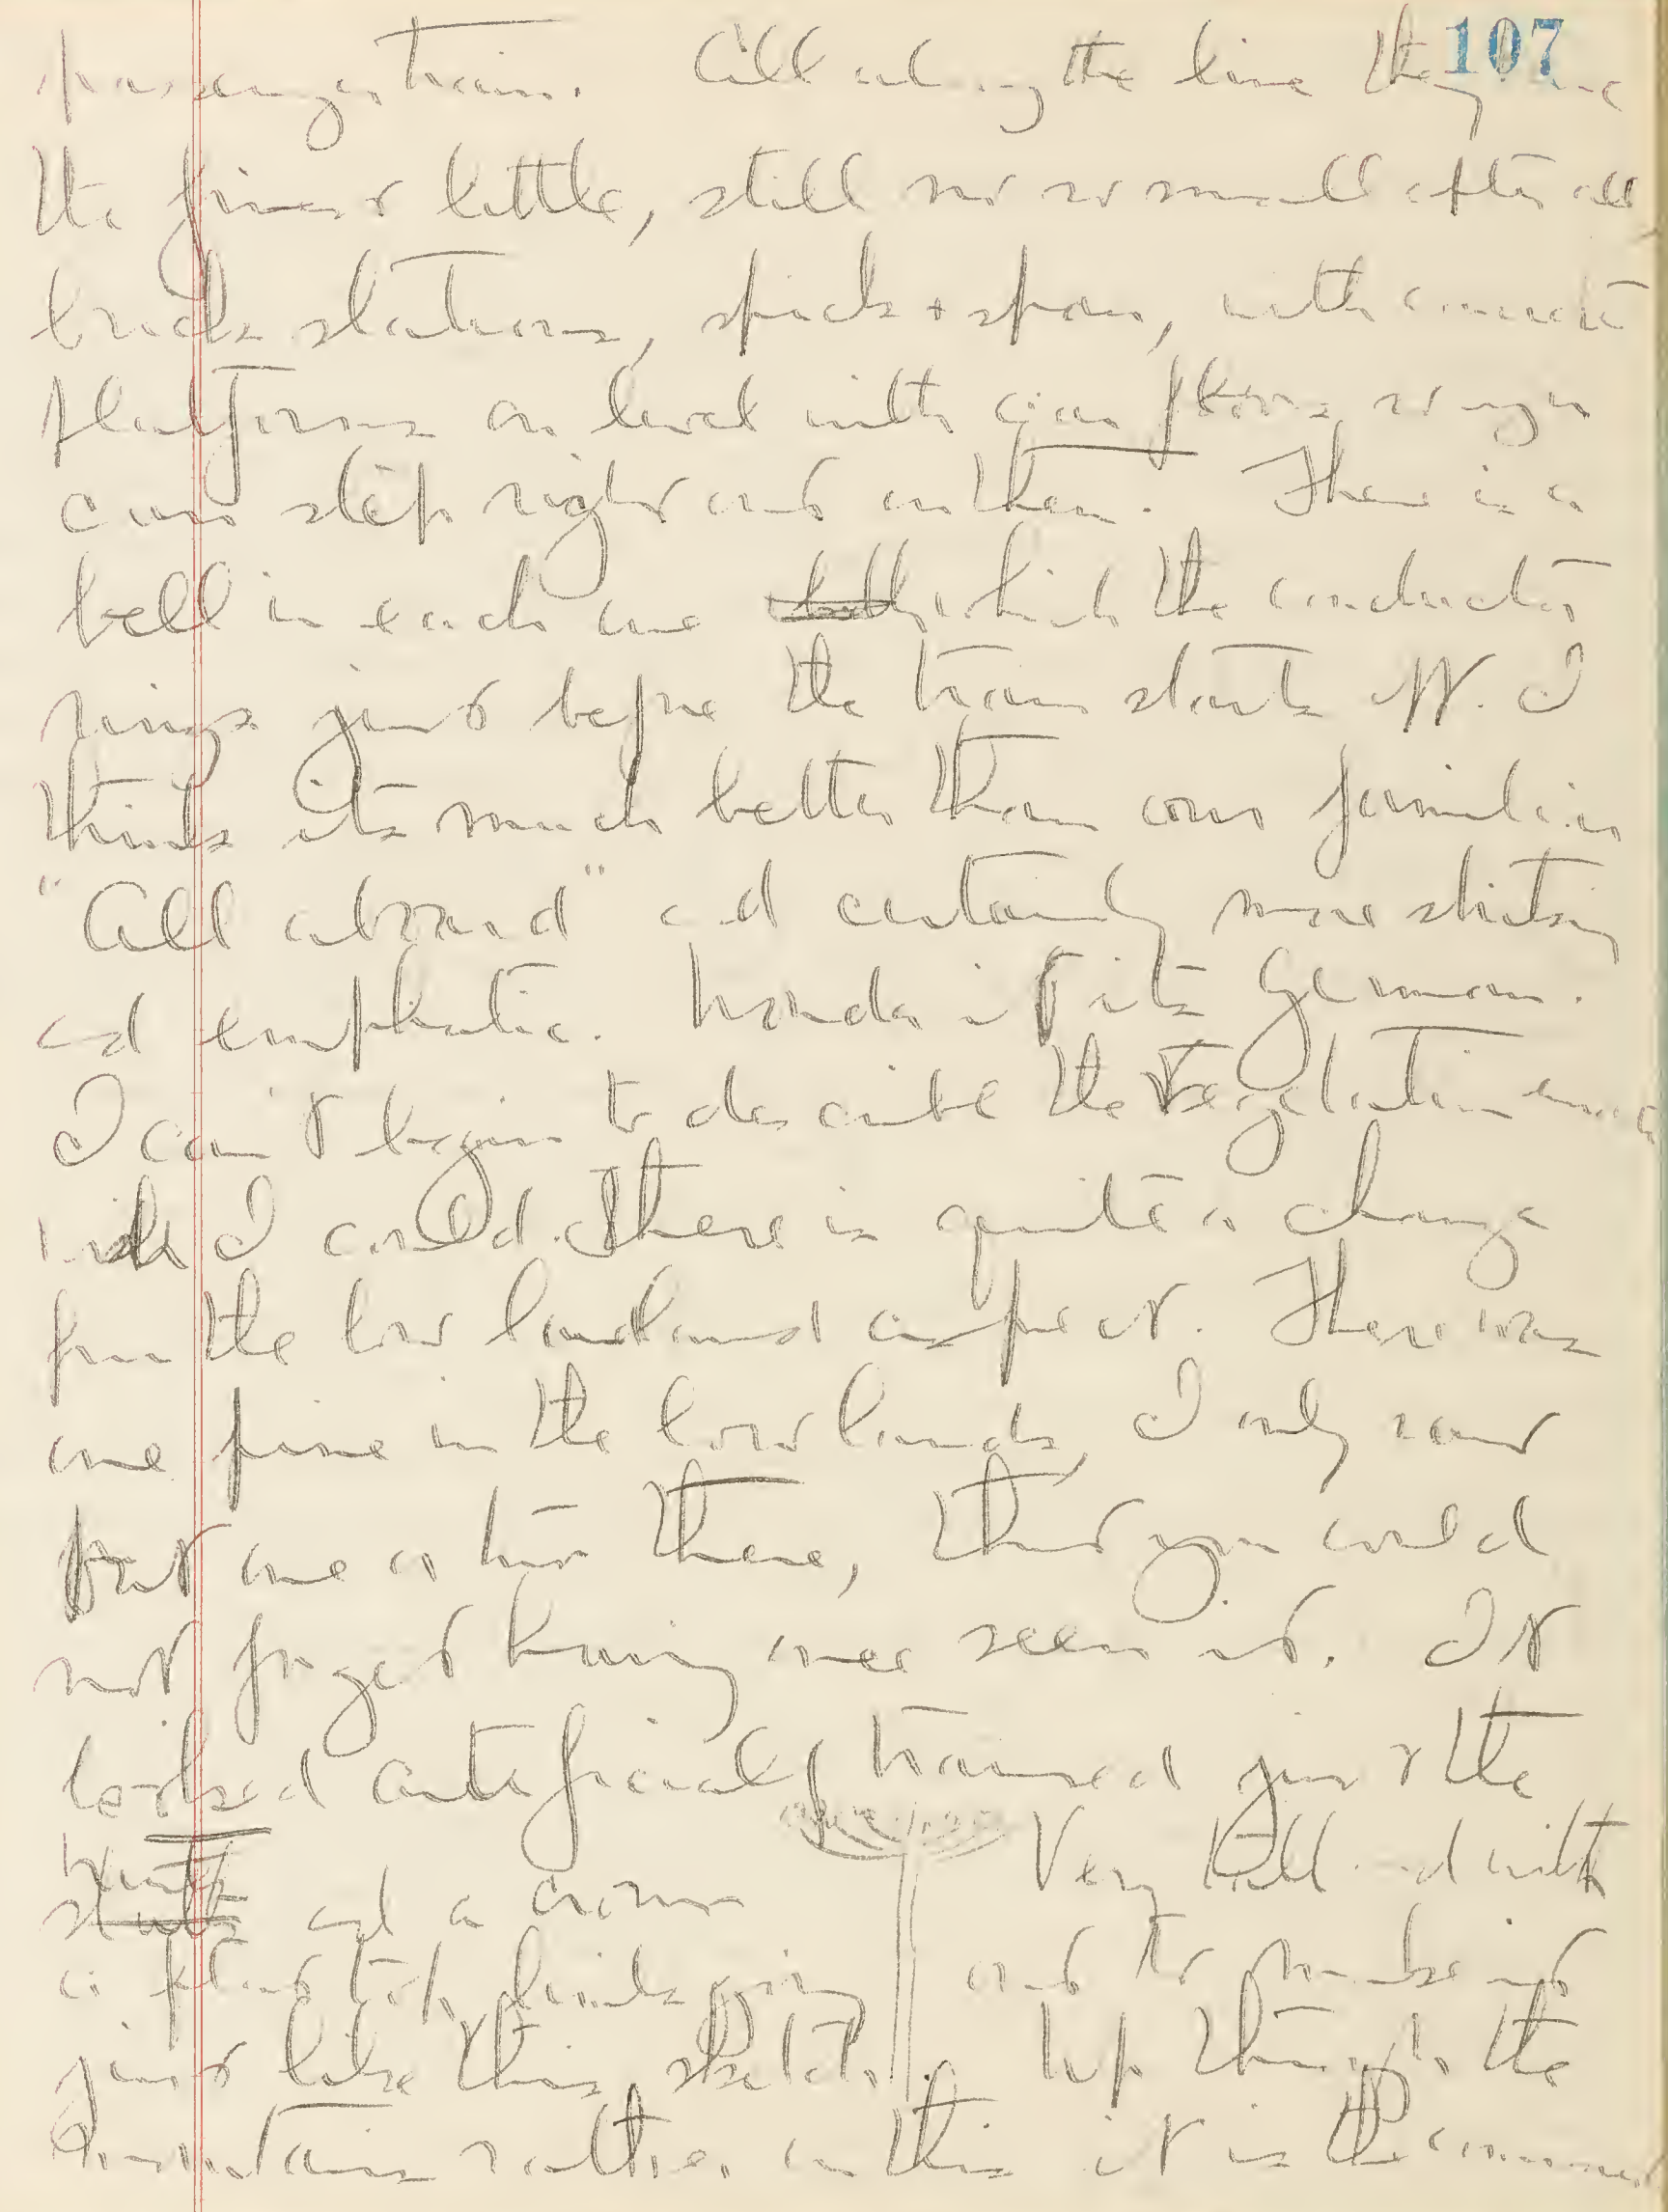 107
passenger train. All along the line they are
the finest little, still not so small after all
brick stations, spick + span, with concrete
platforms on level with car floors so you
can step right out on them. There is a
bell in each one which the conductor
rings just before the train starts off. I
think its much better than our familiar
"All aboard" and certainly more striking
and emphatic. Wonder if its German.
I can't begin to describe the vegetation
wish I could. There is quite a change
from the low land aspect. There was
one pine in the lowlands, I only saw
just one or two there, that you could
not forget having once seen it. It
looked artificially trained just the
trunk and a crown Very tall and with
a flat top, looking out to make it
just like this sketch. Up through the
mountains rather on this it is the common